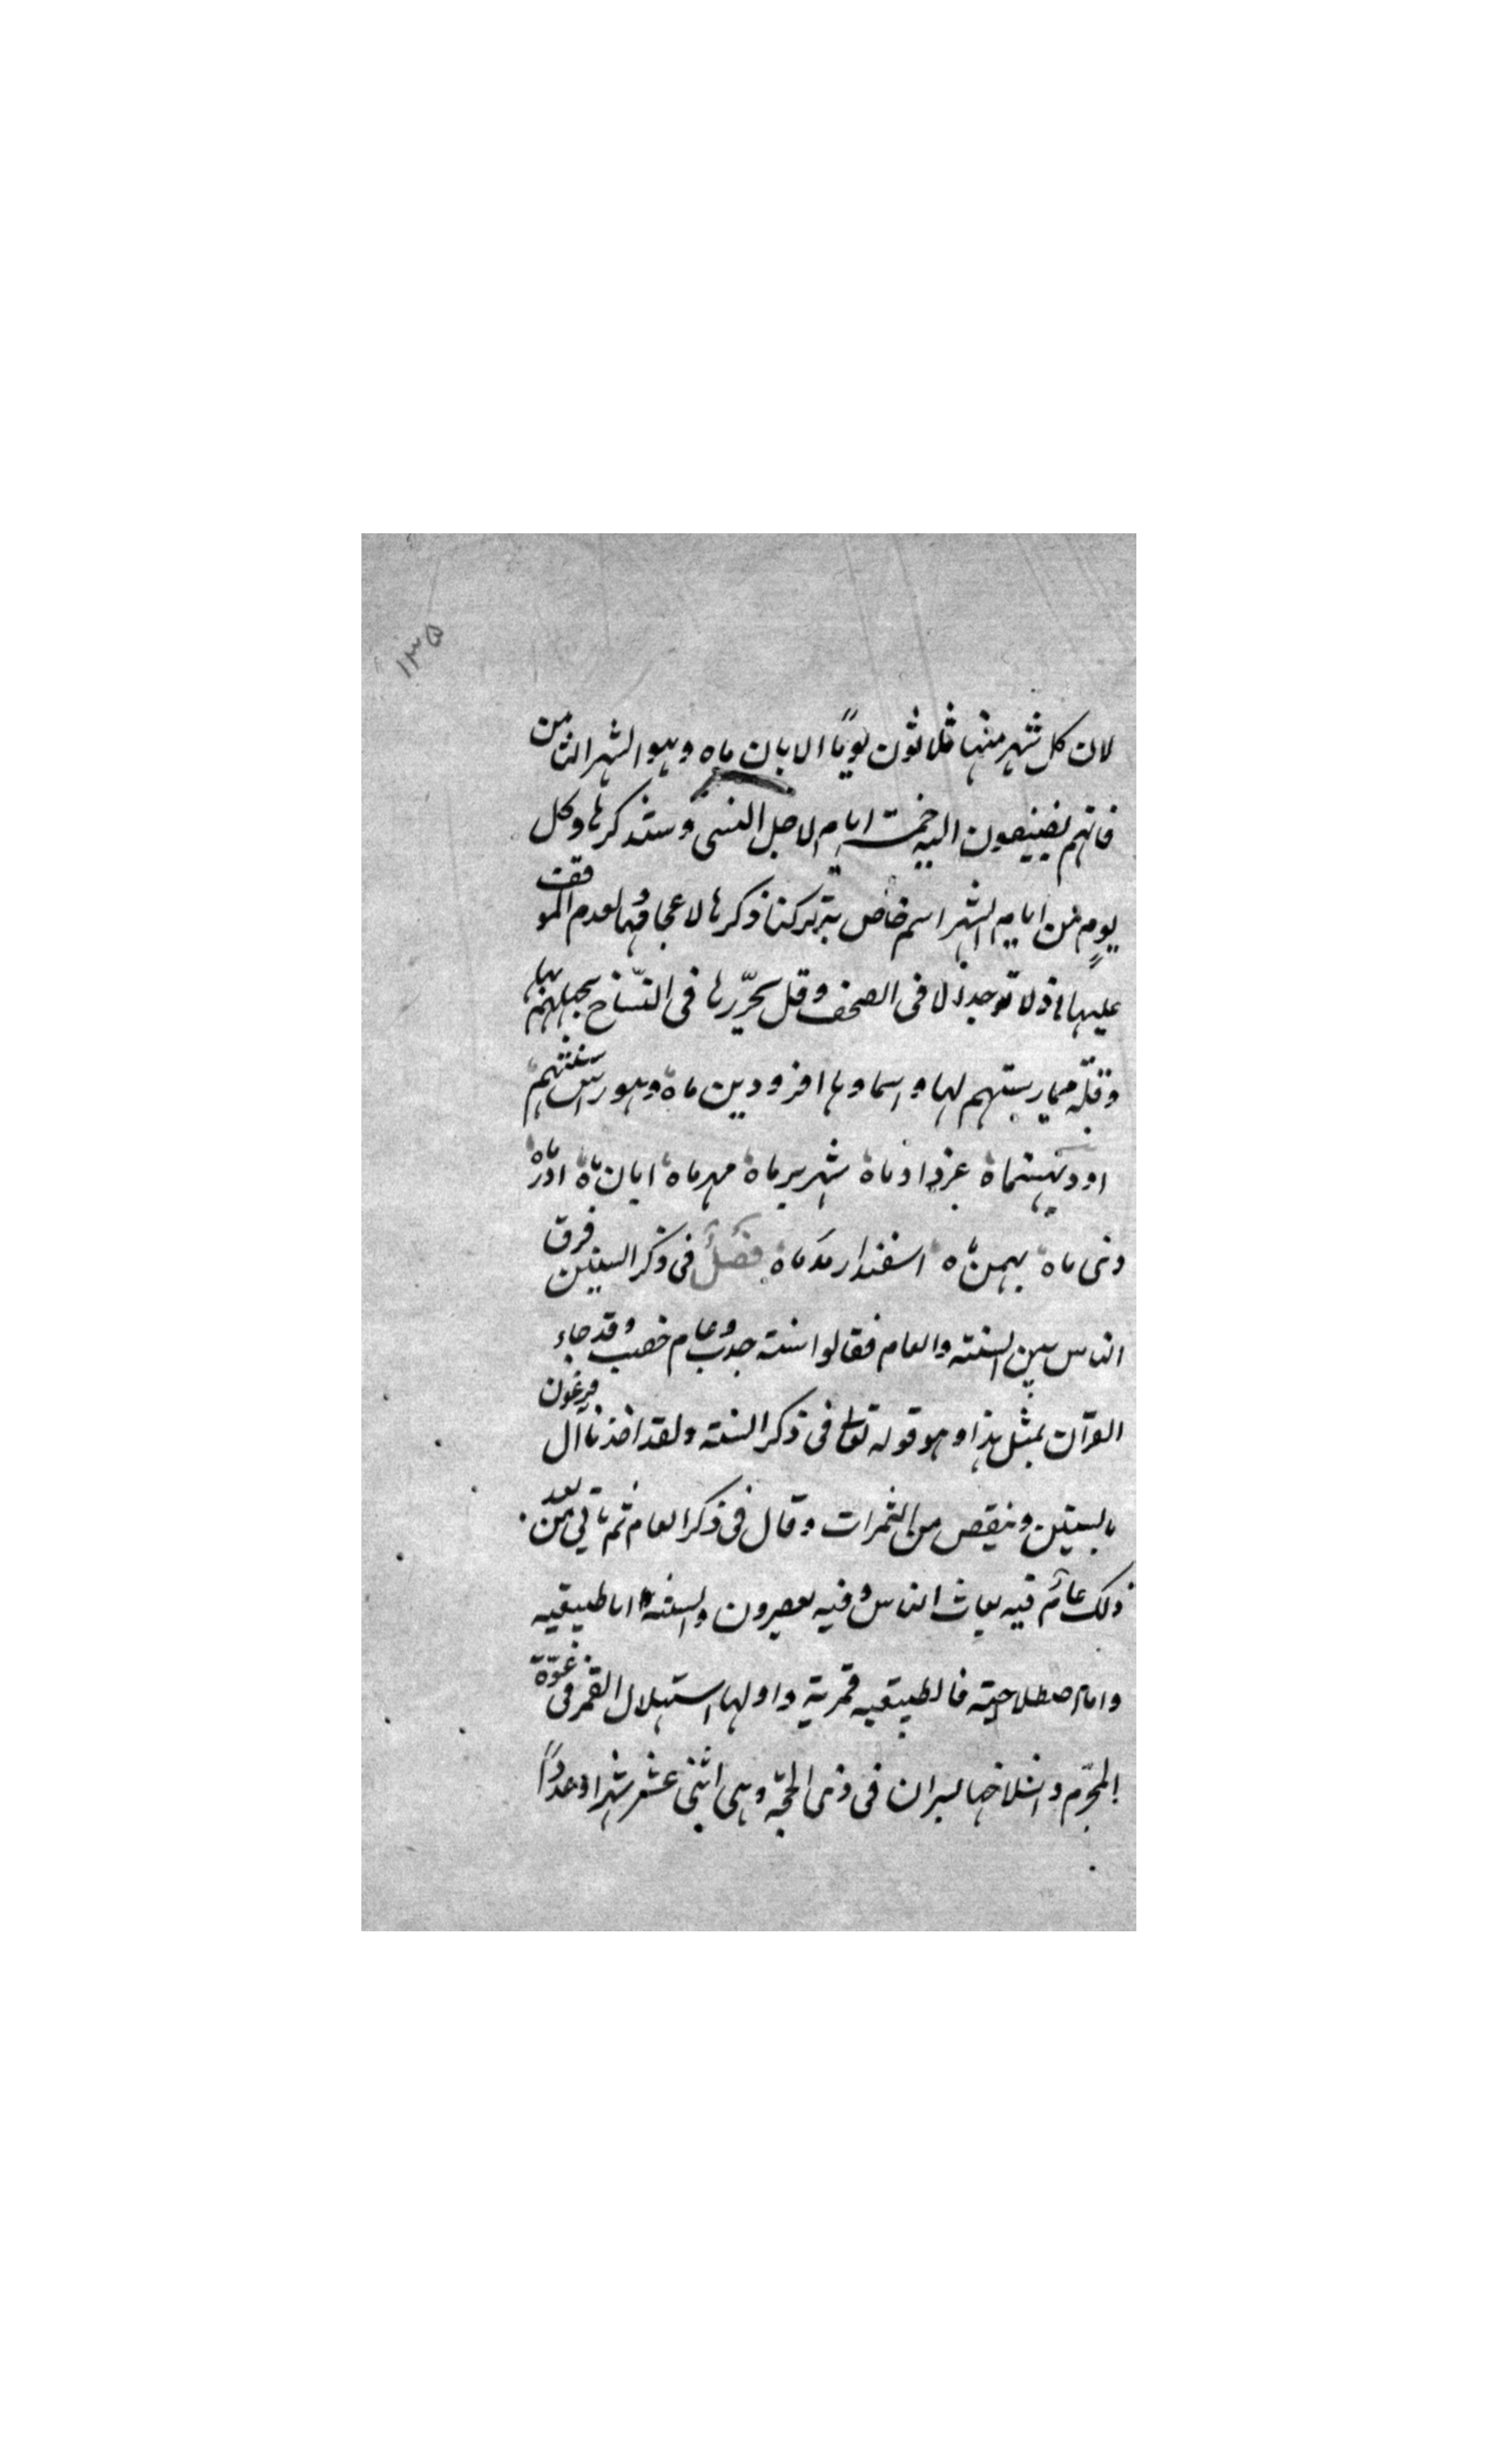 ١٣٥
لان كل شهر منها ثلاثون يوما الا بان ماه وهو الشهر الثامن
فانهم يضيفون اليه خمسة ايام لاجل النسى وستذكرها وكل
يوم من ايام الشهر اسم خاص به تركنا ذكرها لاعجامها لعدم الموقفت
عليها اذ لا توجد الا فى الصحف وقل تحررها فى النساخ بجهلهم بها
وقلة ممارستهم لها واسماوها افرودين ماه وهو راس سنتهم
اوديهشتماه خردادماه شهريرماه مهرماه ابان ماه اذرماه
دى ماه بهمن ماه اسفندارمدماه فصل فى ذكر السنين فرق
الناس بين السنة والعام فقالوا سنة جدب وعام خصب وقد جاء
القرآن بمثل هذا وهو قوله تعالى فى ذكر السنة ولقد اخذنا آل فرعون
بالسنين ونقص من الثمرات وقال فى ذكر العام ثم ياتي من بعد
ذلك عام فيه يغاث الناس وفيه يعصرون والسنة اما طبيعيه
واما اصطلاحية فالطبيعيه قمرية واولها استهلال القمر فى غرة
المحرم وانسلاخها لسران فى ذى الحجة وهى اثنى عشر شهرا وعددا